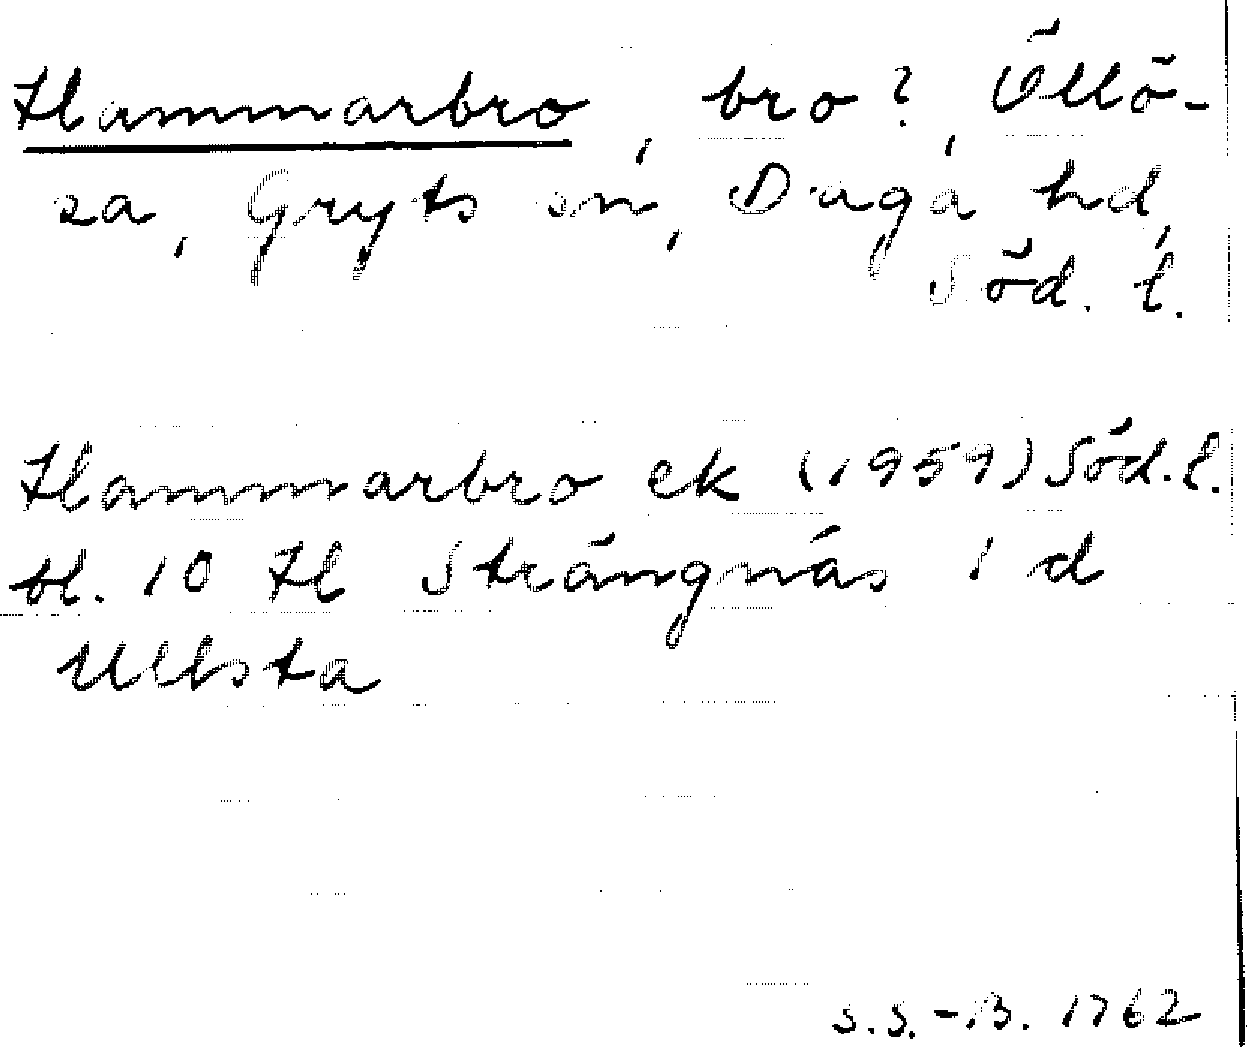 Hammarbro, bro?, Öllö-
sa, Gryts sn, Daga hd,
Söd. l.
Hammarbro ek (1959) Söd. l.
bl. 10 H Strängnäs i d
Ullsta
S.S.-B. 1762